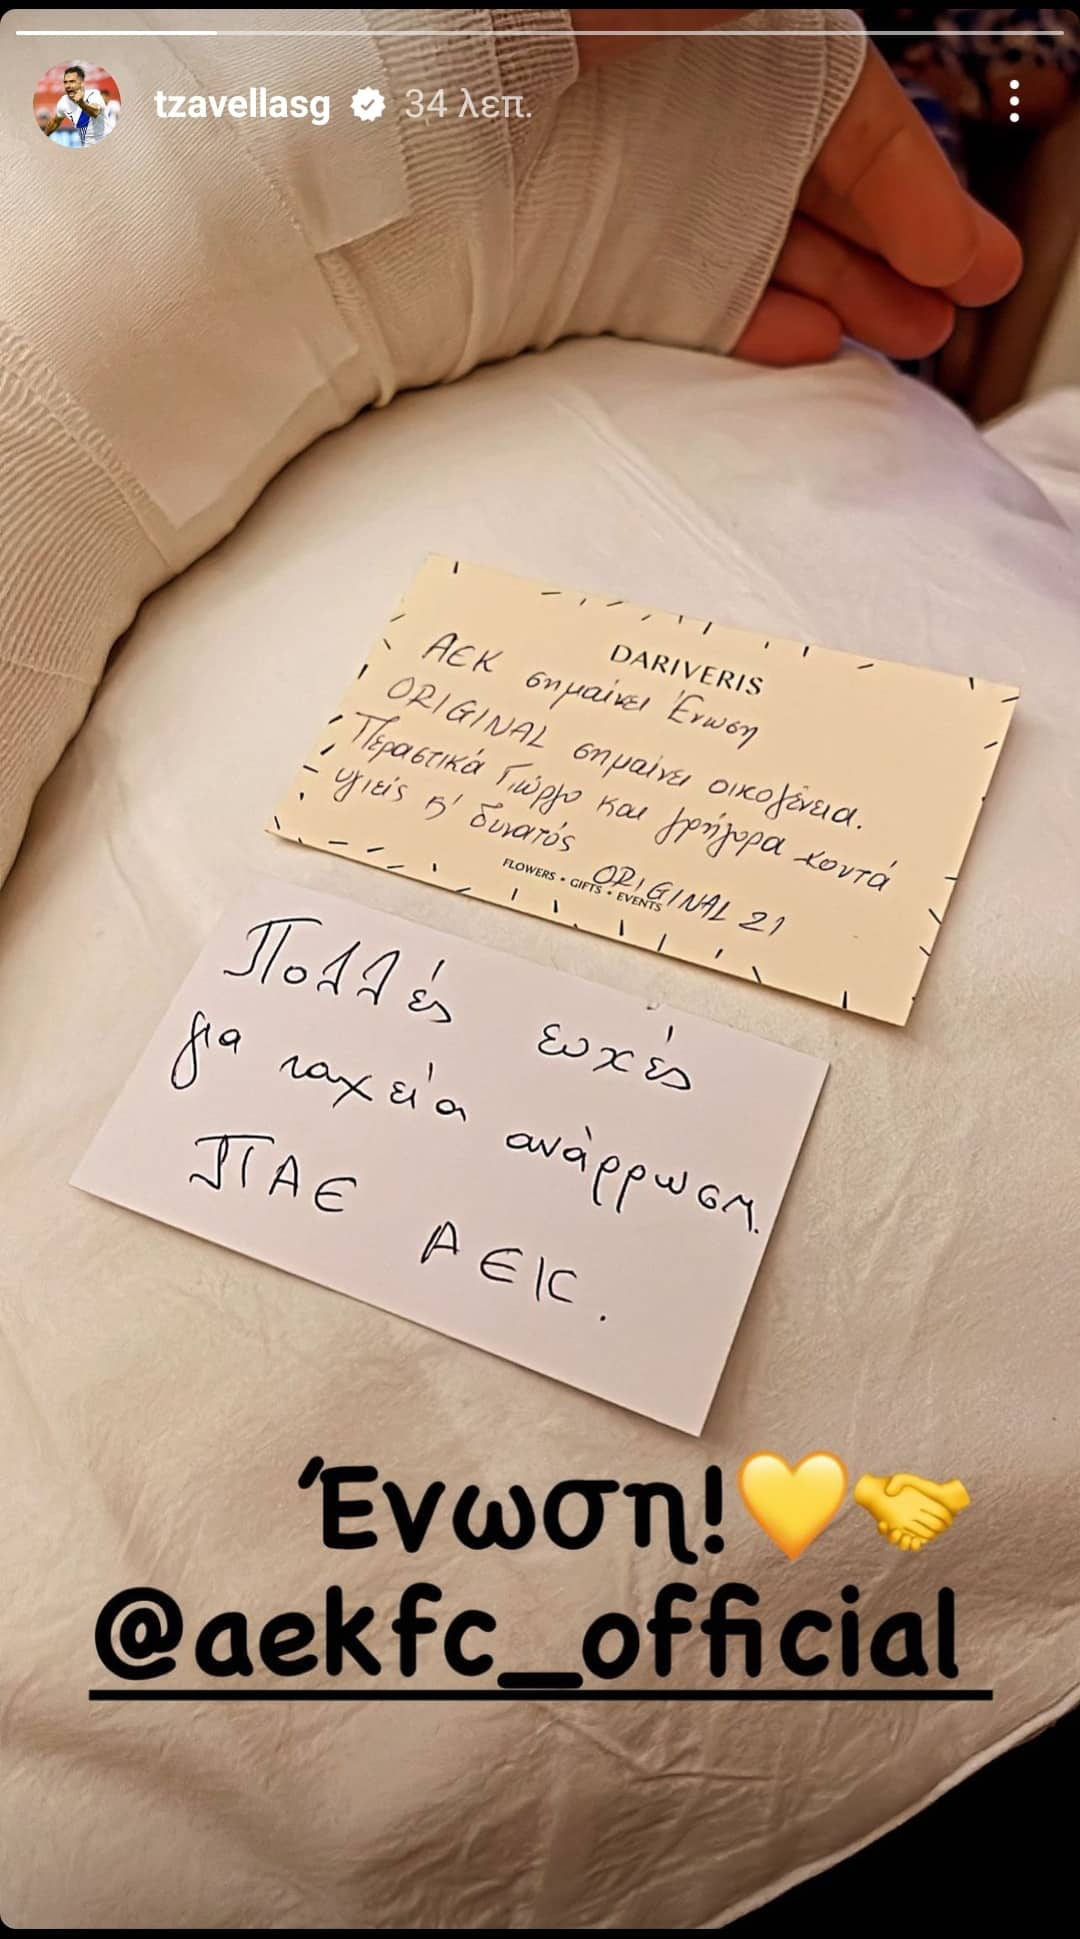 tzavellasg 34 λεπ.
DARIVERIS
ΑΕΚ σημαίνει Ένωση
ORIGINAL σημαίνει οικογένεια.
Περαστικά Γιώργο και γρήγορα κοντά
υγιείς κ' δυνατός
ORIGINAL 21
FLOWERS • GIFTS • EVENTS
Πολλές ευχές
για ταχεία ανάρρωση.
ΠΑΕ ΑΕΚ.
Ένωση!💛🤝
@aekfc_official